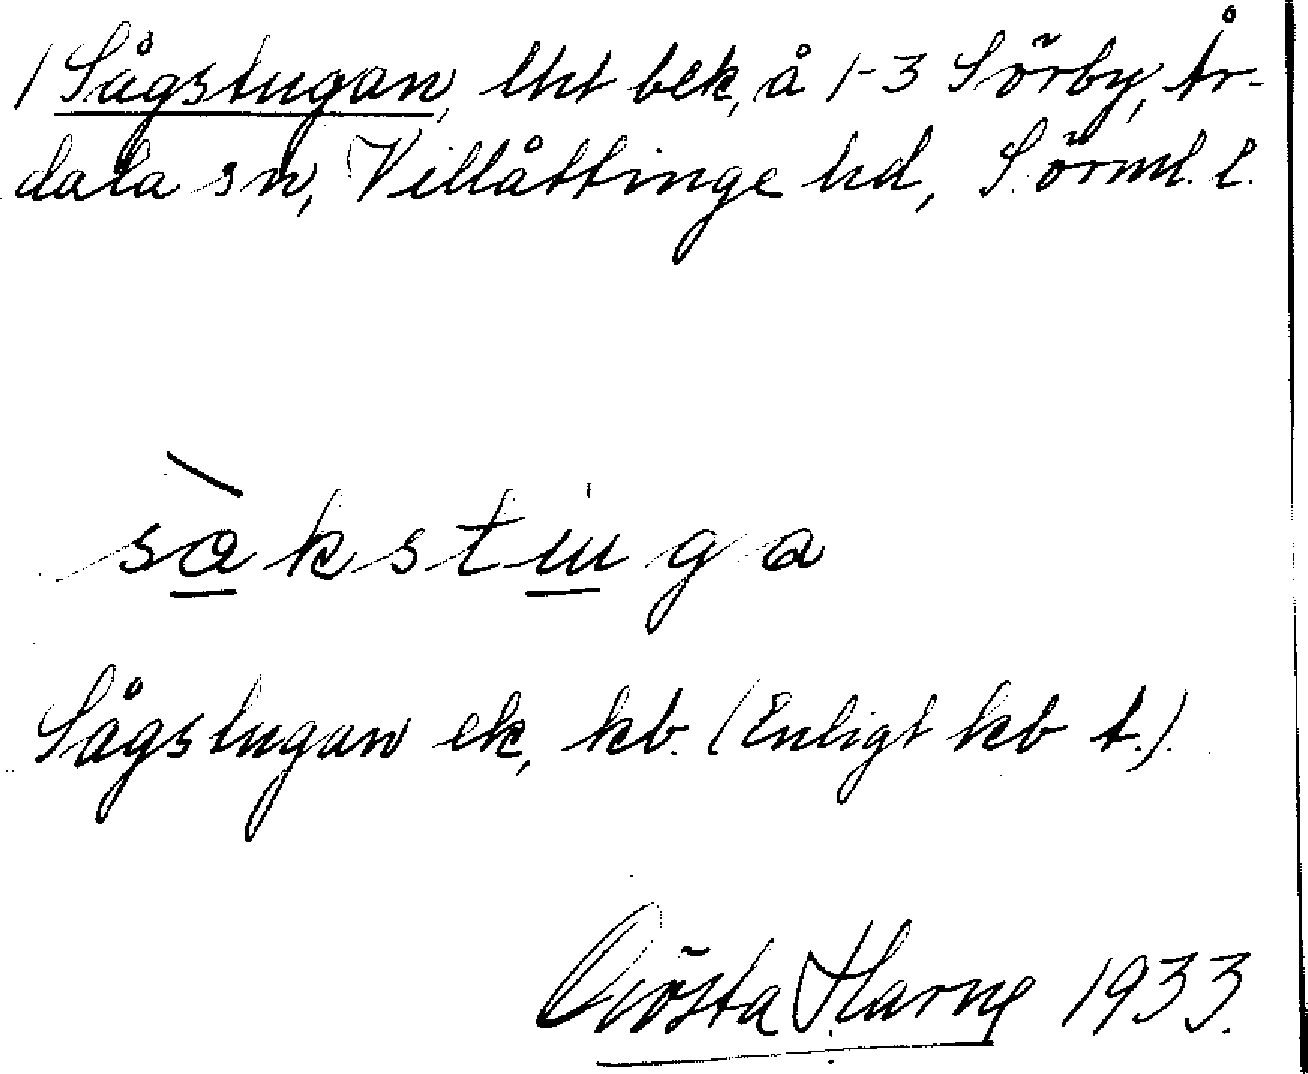 1 Sågstugan, lht bek, å 1-3 Sörby, År-
dala sn, Villåttinge hd, Sörml. l.
sàkstuga
Sågstugan ek, kb. (Enligt kb t.).
Gösta Harng 1933.